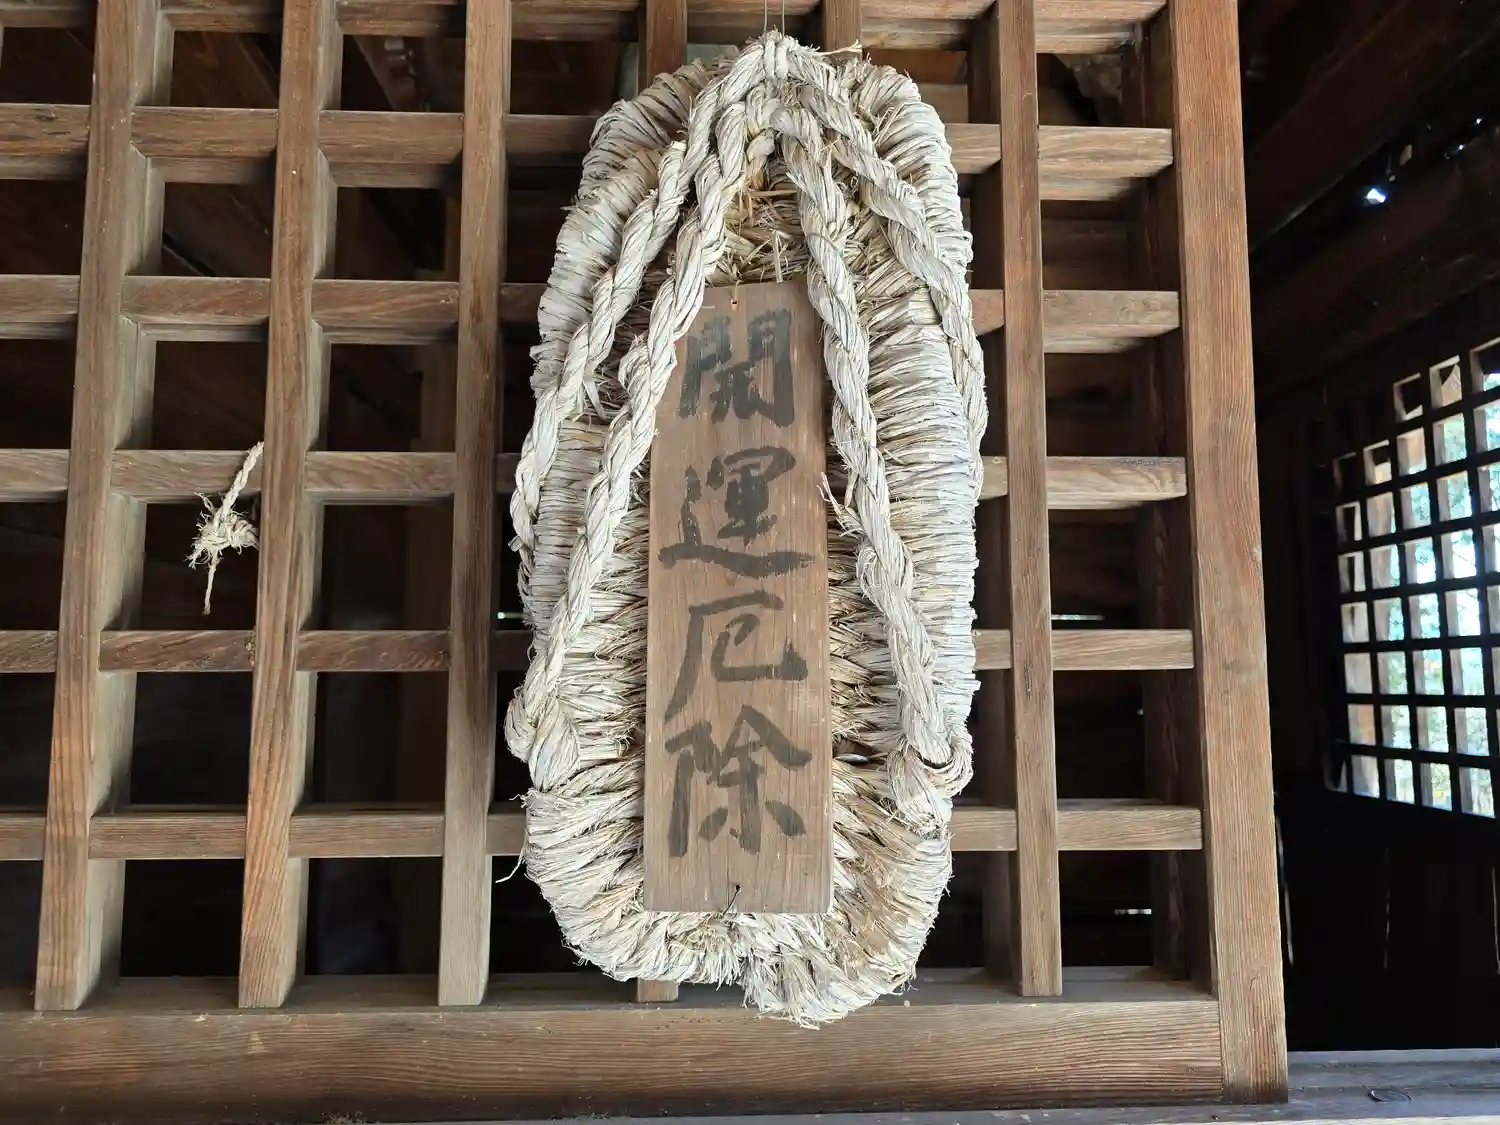 開運厄除